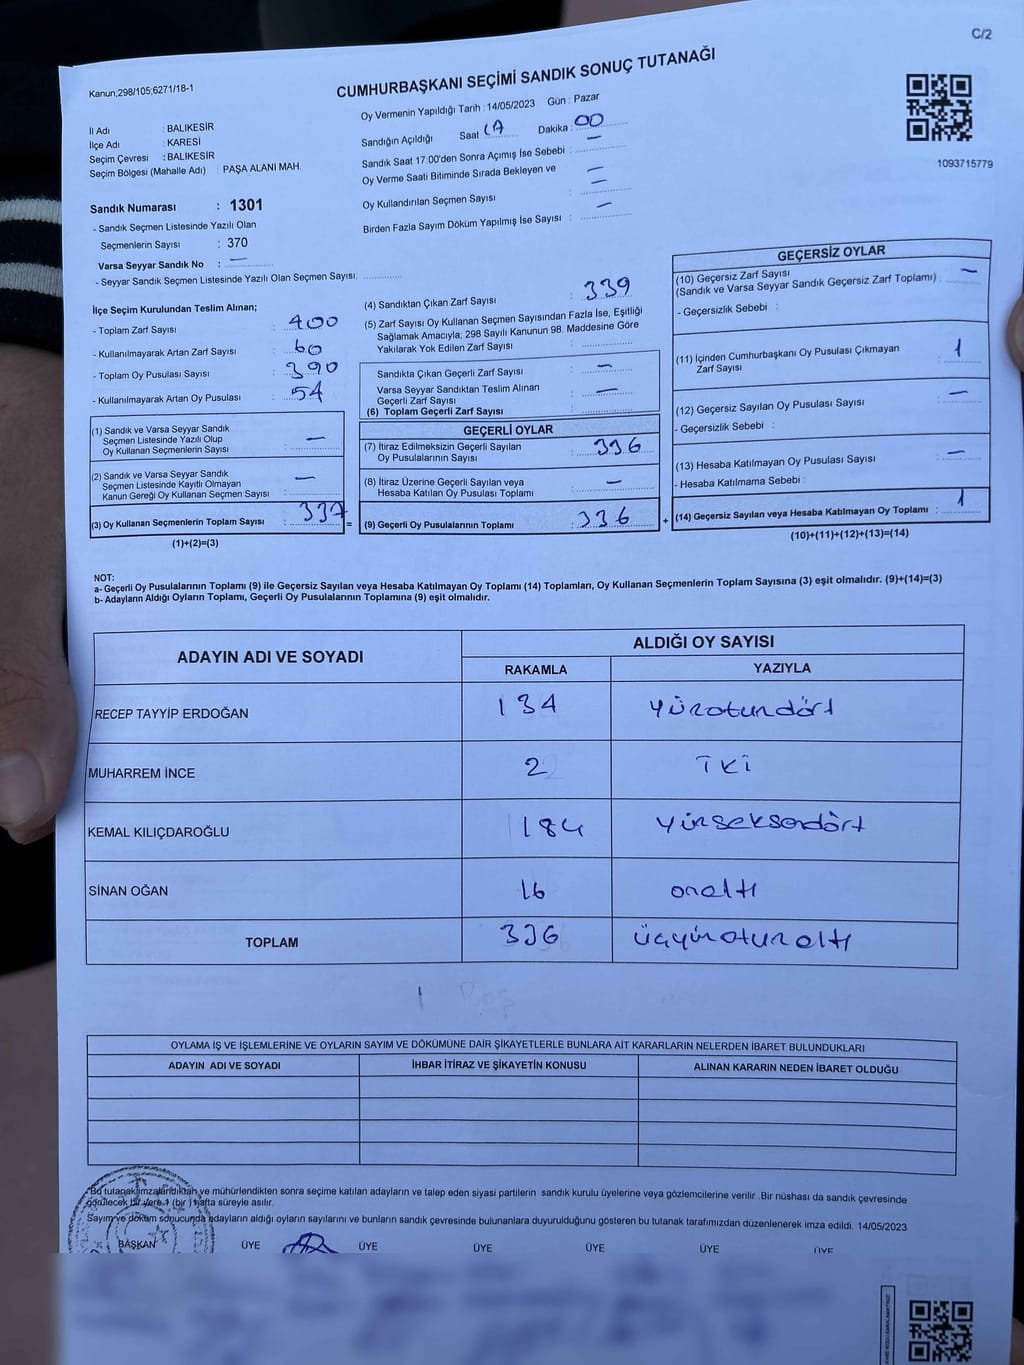 C/2
Kanun;298/105;6271/18-1
CUMHURBAŞKANI SEÇİMİ SANDIK SONUÇ TUTANAĞI
1093715779
İl Adı : BALIKESİR
İlçe Adı : KARESİ
Seçim Çevresi : BALIKESİR
Seçim Bölgesi (Mahalle Adı) : PAŞA ALANI MAH.
Oy Vermenin Yapıldığı Tarih : 14/05/2023 Gün : Pazar
Sandığın Açıldığı Saat Dakika : 00
Sandık Saat 17:00'den Sonra Açımış İse Sebebi : —
Oy Verme Saati Bitiminde Sırada Bekleyen ve —
Oy Kullandırılan Seçmen Sayısı : —
Birden Fazla Sayım Döküm Yapılmış İse Sayısı : —
Sandık Numarası : 1301
- Sandık Seçmen Listesinde Yazılı Olan
Seçmenlerin Sayısı : 370
Varsa Seyyar Sandık No : —
- Seyyar Sandık Seçmen Listesinde Yazılı Olan Seçmen Sayısı:
İlçe Seçim Kurulundan Teslim Alınan;
- Toplam Zarf Sayısı : 400
- Kullanılmayarak Artan Zarf Sayısı : 60
- Toplam Oy Pusulası Sayısı : 390
- Kullanılmayarak Artan Oy Pusulası : 54
(1) Sandık ve Varsa Seyyar Sandık
Seçmen Listesinde Yazılı Olup
Oy Kullanan Seçmenlerin Sayısı : —
(2) Sandık ve Varsa Seyyar Sandık
Seçmen Listesinde Kayıtlı Olmayan
Kanun Gereği Oy Kullanan Seçmen Sayısı : —
(3) Oy Kullanan Seçmenlerin Toplam Sayısı : 337 =
(1)+(2)=(3)
(4) Sandıktan Çıkan Zarf Sayısı : 339
(5) Zarf Sayısı Oy Kullanan Seçmen Sayısından Fazla İse, Eşitliği
Sağlamak Amacıyla; 298 Sayılı Kanunun 98. Maddesine Göre
Yakılarak Yok Edilen Zarf Sayısı :
Sandıkta Çıkan Geçerli Zarf Sayısı : —
Varsa Seyyar Sandıktan Teslim Alınan
Geçerli Zarf Sayısı : —
(6) Toplam Geçerli Zarf Sayısı :
GEÇERLİ OYLAR
(7) İtiraz Edilmeksizin Geçerli Sayılan
Oy Pusulalarının Sayısı : 336
(8) İtiraz Üzerine Geçerli Sayılan veya
Hesaba Katılan Oy Pusulası Toplamı : —
(9) Geçerli Oy Pusulalarının Toplamı : 336 +
GEÇERSİZ OYLAR
(10) Geçersiz Zarf Sayısı
(Sandık ve Varsa Seyyar Sandık Geçersiz Zarf Toplamı) : —
- Geçersizlik Sebebi :
(11) İçinden Cumhurbaşkanı Oy Pusulası Çıkmayan
Zarf Sayısı : 1
(12) Geçersiz Sayılan Oy Pusulası Sayısı : —
- Geçersizlik Sebebi :
(13) Hesaba Katılmayan Oy Pusulası Sayısı : —
- Hesaba Katılmama Sebebi :
(14) Geçersiz Sayılan veya Hesaba Katılmayan Oy Toplamı : 1
(10)+(11)+(12)+(13)=(14)
NOT:
a- Geçerli Oy Pusulalarının Toplamı (9) ile Geçersiz Sayılan veya Hesaba Katılmayan Oy Toplamı (14) Toplamları, Oy Kullanan Seçmenlerin Toplam Sayısına (3) eşit olmalıdır. (9)+(14)=(3)
b- Adayların Aldığı Oyların Toplamı, Geçerli Oy Pusulalarının Toplamına (9) eşit olmalıdır.
ADAYIN ADI VE SOYADI
ALDIĞI OY SAYISI
RAKAMLA YAZIYLA
RECEP TAYYİP ERDOĞAN 134 yüzotuzdört
MUHARREM İNCE 2 iki
KEMAL KILIÇDAROĞLU 184 yüzseksendört
SİNAN OĞAN 16 onaltı
TOPLAM 336 üçyüzotuzaltı
OYLAMA İŞ VE İŞLEMLERİNE VE OYLARIN SAYIM VE DÖKÜMÜNE DAİR ŞİKAYETLERLE BUNLARA AİT KARARLARIN NELERDEN İBARET BULUNDUKLARI
ADAYIN ADI VE SOYADI İHBAR İTİRAZ VE ŞİKAYETİN KONUSU ALINAN KARARIN NEDEN İBARET OLDUĞU
- Bu tutanak imzalandıktan ve mühürlendikten sonra seçime katılan adayların ve talep eden siyasi partilerin sandık kurulu üyelerine veya gözlemcilerine verilir .Bir nüshası da sandık çevresinde
görülecek bir yere 1 (bir ) hafta süreyle asılır.
Sayım ve döküm sonucunda adayların aldığı oyların sayılarını ve bunların sandık çevresinde bulunanlara duyurulduğunu gösteren bu tutanak tarafımızdan düzenlenerek imza edildi. 14/05/2023
BAŞKAN ÜYE ÜYE ÜYE ÜYE ÜYE ÜYE